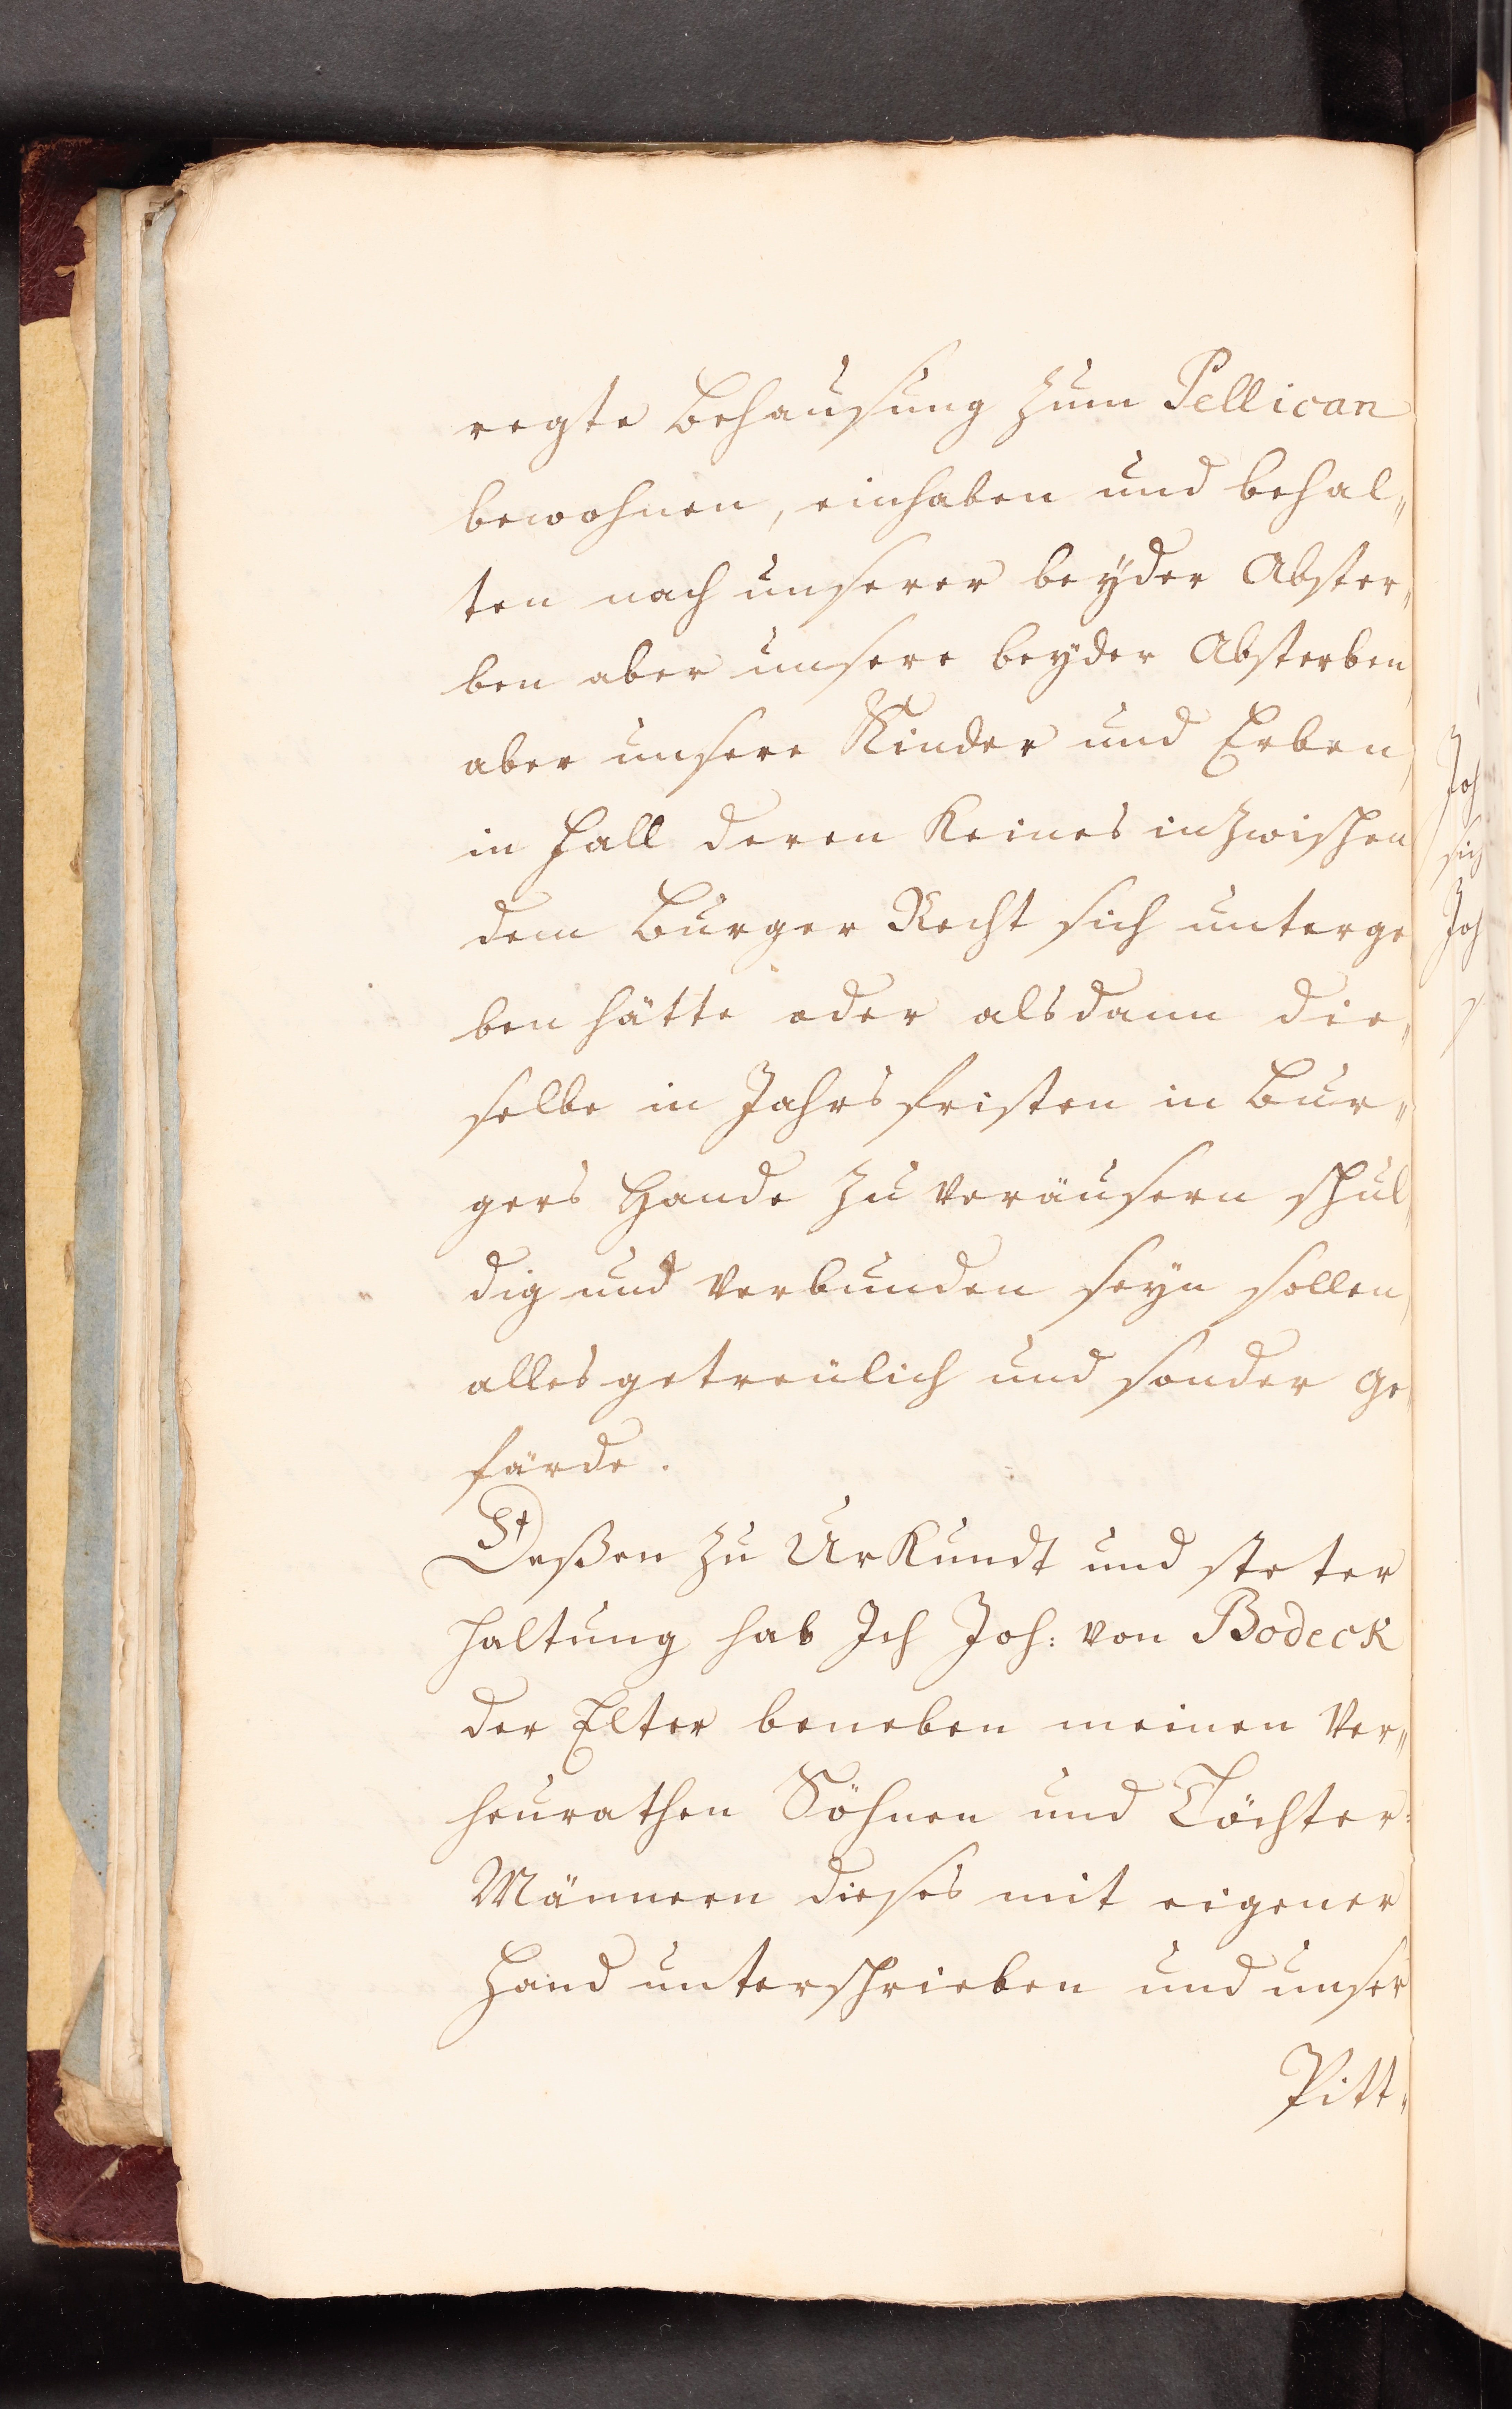 regte Behausung zum Pellican
bewohnen, einhaben und behal„
ten nach unserer beÿder Abster„
ben aber unsere beÿder Absterben
aber unsere Kinder und Erben,
in Fall deren Keines inzwischen
dem Burger Recht sich unterge
ben hätte oder alsdann die„
selbe in Jahrs fristen in Bur„
gers Hande zu veräusern schul„
dig und verbunden seÿn sollen,
alles getreulich und sonder ge„
färde.
Deßen zu UrKundt und steter
haltung hab Ich Joh: von Bodeck
der Elter beneben meinen Ver„
heurathen Söhnen und Töchter:
Männern dieses mit eigener
Hand unterschrieben und unser
Pitt„
Joh
sich
Joh